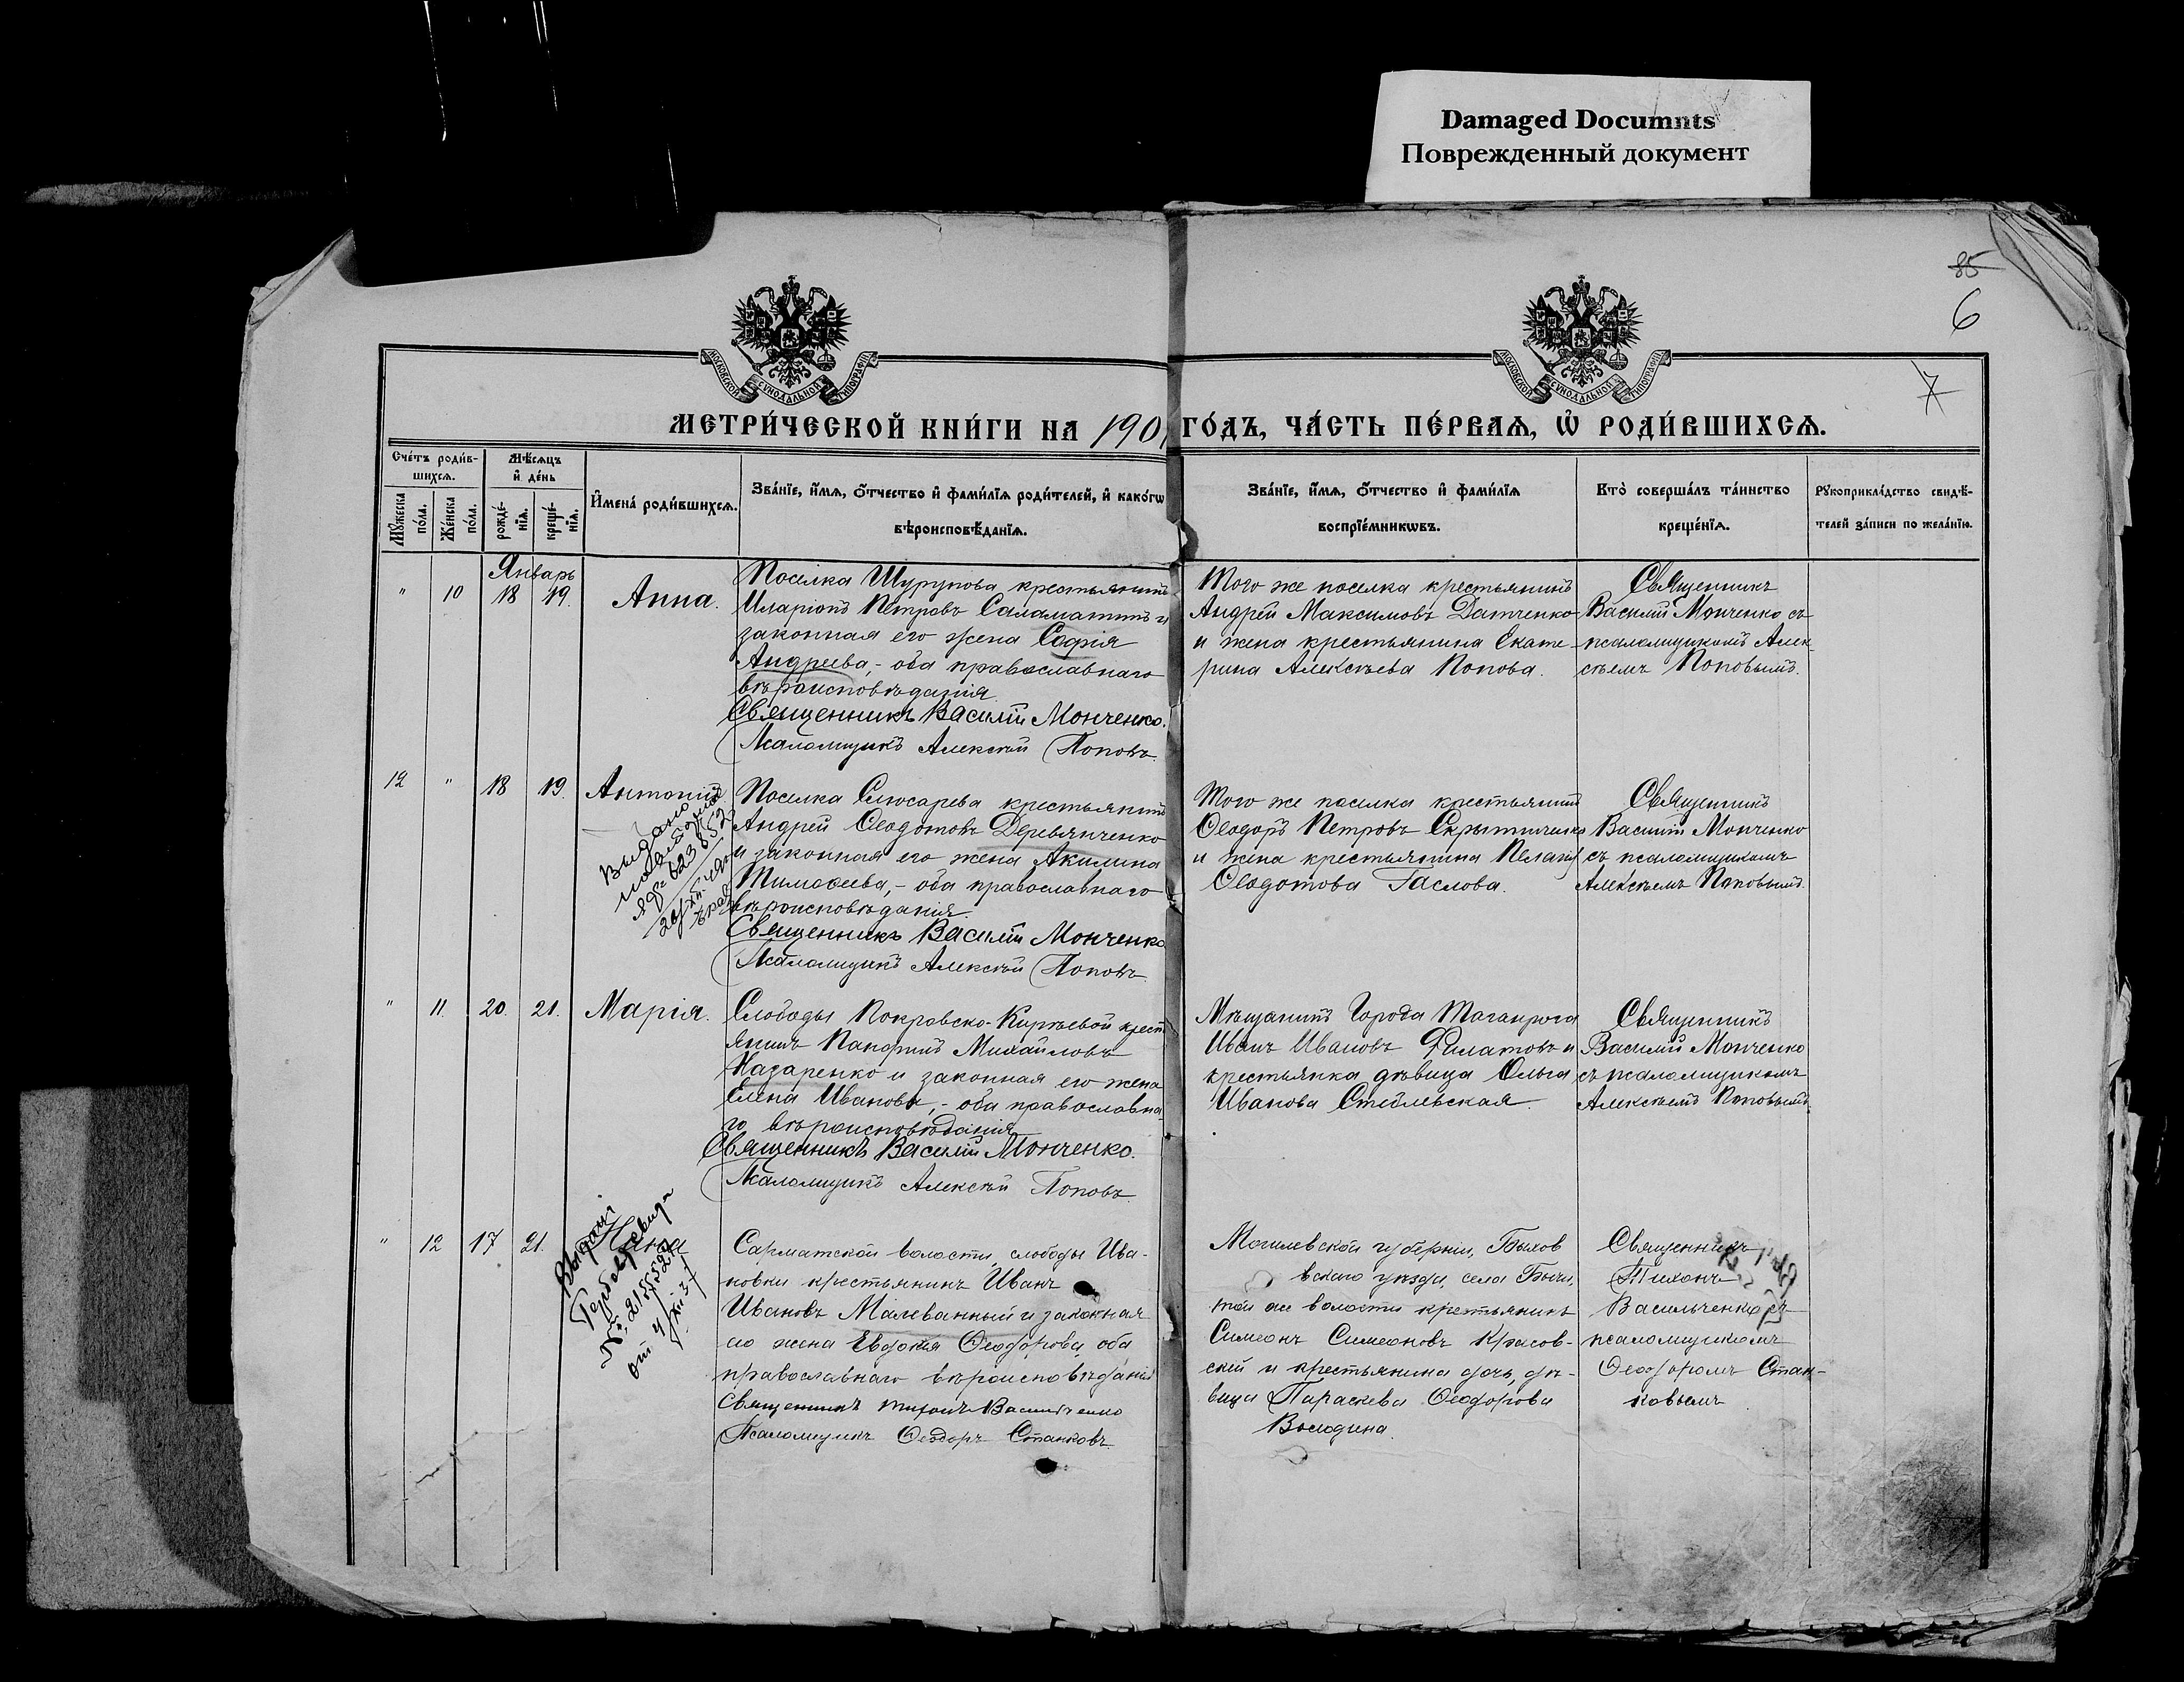 Damaged Documnts
Поврежденный документ
85
6
7
МОСКОВСКОЙ СѴНОДАЛЬНОЙ ТИПОГРАФІИ
МОСКОВСКОЙ СѴНОДАЛЬНОЙ ТИПОГРАФІИ
МЕТРИ́ЧЕСКОЙ КНИ́ГИ НА 190 ГО́ДЪ, ЧА́СТЬ ПЕ́РВАѦ, Ѡ҆ РОДИ́ВШИХСѦ.
Сче́тъ роди́в-
шихсѧ.
Мꙋ́жеска по́ла.
Же́нска по́ла.
Мѣ́сѧцъ
и҆ де́нь
рожде́-
нїѧ.
креще́-
нїѧ.
И҆мена̀ роди́вшихсѧ.
Зва́нїе, и҆́мѧ, ѻ҆́тчество и҆ фами́лїѧ роди́телей, и҆ како́гѡ
вѣроисповѣ́данїѧ.
Зва́нїе, и҆́мѧ, ѻ҆́тчество и҆ фами́лїѧ
воспрїе́мникѡвъ.
Кто̀ соверша́лъ та́инство
креще́нїѧ.
Рꙋкоприкла́дство свидѣ́-
телей за́писи по жела́нїю.
Январь
" 10 18 19. Анна.
Поселка Шурупова крестьянинъ
Иларіонъ Петровъ Саламатинъ и
законная его жена Софія
Андреева,- оба православнаго
вѣроисповѣданія
Священникъ Василій Монченко.
Псаломщикъ Алексѣй Поповъ.
Того же поселка крестьянинъ
Андрей Максимовъ Датченко
и жена крестьянина Екате-
рина Алексѣева Попова.
Священникъ
Василій Монченко съ
псаломщикомъ Алек
сѣемъ Поповымъ.
12 " 18 19. Антоній.
Выдано
Поселка Слюсарева крестьянинъ
Андрей Ѳеодотовъ Деревянченко
и законная его жена Акилина
Тимоѳеева,- оба православнаго
вѣроисповѣданія.
Священникъ Василій Монченко
Псаломщикъ Алексѣй Поповъ
Того же поселка крестьянинъ
Ѳеодоръ Петровъ
и жена крестьянина Пелагія
Ѳеодотова
Священникъ
Василій Монченко
съ псаломщикомъ
Алексѣемъ Поповымъ.
" 11. 20. 21. Марія.
Слободы Покровско-Кирѣевой крест
янинъ Михайловъ
Назаренко и законная его жена
Елена Иванова,- оба православна
го вѣроисповѣданія
Священникъ Василій Монченко.
Псаломщикъ Алексѣй Поповъ.
Мѣщанинъ Города Таганрога
Иванъ Ивановъ Филатовъ и
крестьянка дѣвица Ольга
Иванова Стеблевская.
Священникъ
Василій Монченко
съ псаломщикомъ
Алексѣемъ Поповымъ.
" 12 17 21.
№ 215552
Сарматской волости, слободы Ива-
новки крестьянинъ Иванъ
Ивановъ Малеванный и законная
его жена Евдокія Ѳеодорова, оба
православнаго вѣроисповѣданія
Священникъ Тихонъ Васильченко
Псаломщикъ Ѳеодоръ Станковъ.
Могилевской губерніи, Быхов
вскаго уѣзда, села
той же волости крестьянинъ
Симеонъ Симеоновъ Красов-
скій и крестьянина дочь, дѣ-
вица Параскева Ѳеодорова
Володина.
Священникъ
Тихонъ
Васильченко съ
псаломщикомъ
Ѳеодоромъ Стан-
ковымъ